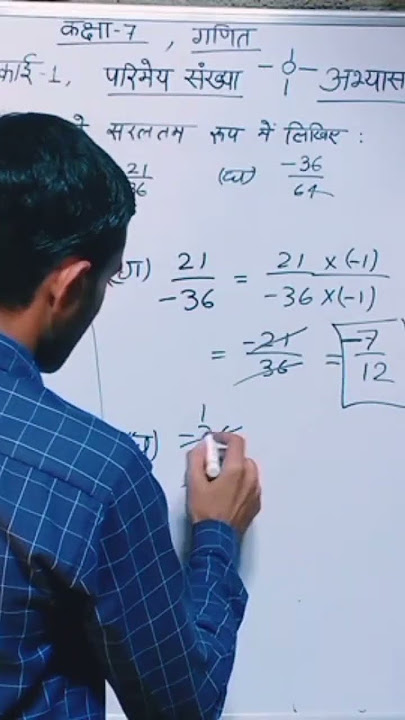 कक्षा-7, गणित
-1, परिमेय संख्या अभ्यास
सरलतम रूप में लिखिए :
21/36 (घ) -36/64
(ग) 21/-36 = 21 × (-1)/-36 × (-1)
= -21/36 = -7/12